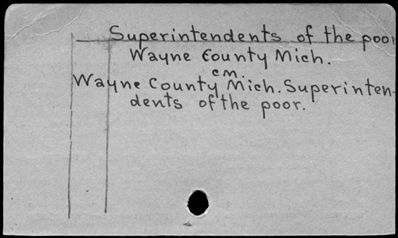 Superintendents of the poor
Wayne County Mich.
cm
Wayne County Mich. Superinten-
dents of the poor.